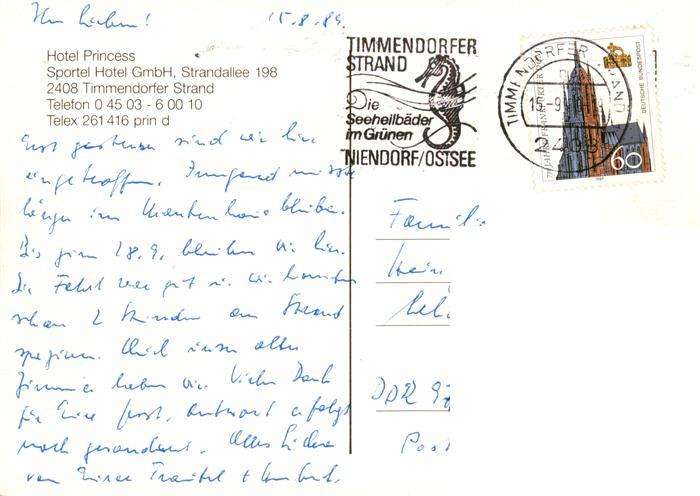 Ihr Lieben! 15.8.89.
Hotel Princess
Sportel Hotel GmbH, Strandallee 198
2408 Timmendorfer Strand
Telefon 0 45 03 - 6 00 10
Telex 261 416 prin d
Erst gestern sind wir hier
eingetroffen. Irmgard musste
länger im Krankenhaus bleiben.
Bis zum 18.9. bleiben wir hier.
Die Fahrt war gut u. wir konnten
schon 2 Stunden am Strand
Auch unser altes
Zimmer haben wir. Vielen Dank
für Eure Post, Antwort erfolgt
noch gesondert. Alles Liebe
von Eurer Traudel +
TIMMENDORFER
STRAND
Die
Seeheilbäder
im Grünen
NIENDORF/OSTSEE
TIMMENDORFER STRAND
15-9
2408
DEUTSCHE BUNDESPOST
60
Familie
Hein
DDR
Post